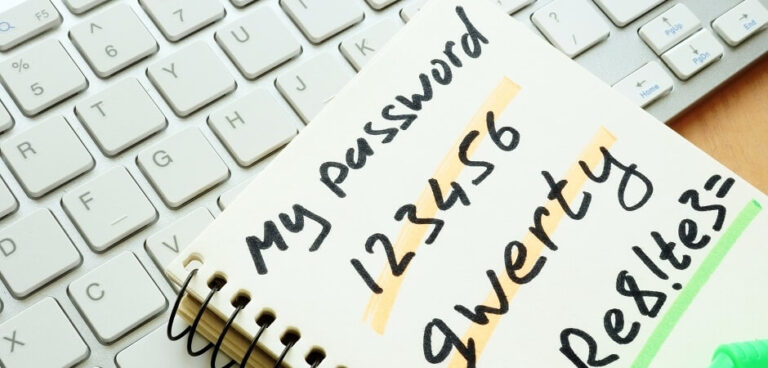 My password
123456
qwerty
Re8!te3=
F5
PgUp
PgDn
End
Home
^
6
%
5
R
T
Y
U
I
D
F
G
H
J
K
X
C
V